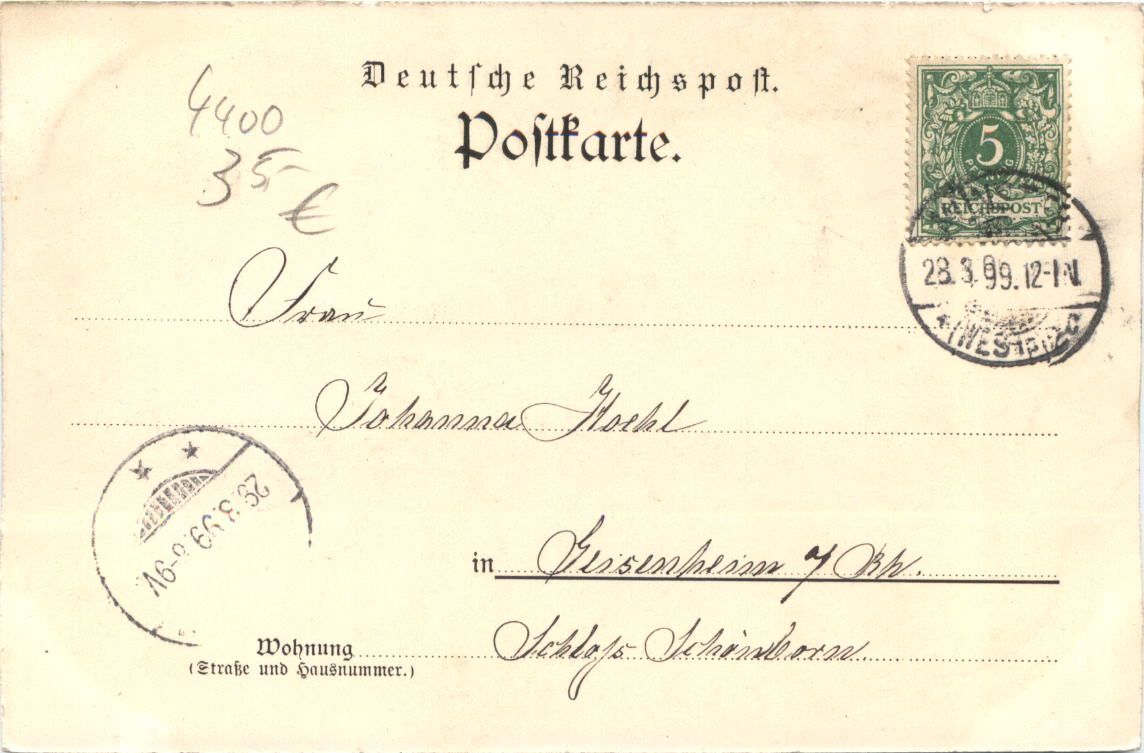 Deutsche Reichspost.
Postkarte.
4400
35,-
€
5
PFENNIG
REICHSPOST
28.3.99.12-1N.
(WESTF)
Frau
Johanna Koehl
in Geisenheim a/ Rh.
Schloss Schönborn
Wohnung
(Straße und Hausnummer.)
29.3.99.8-9V